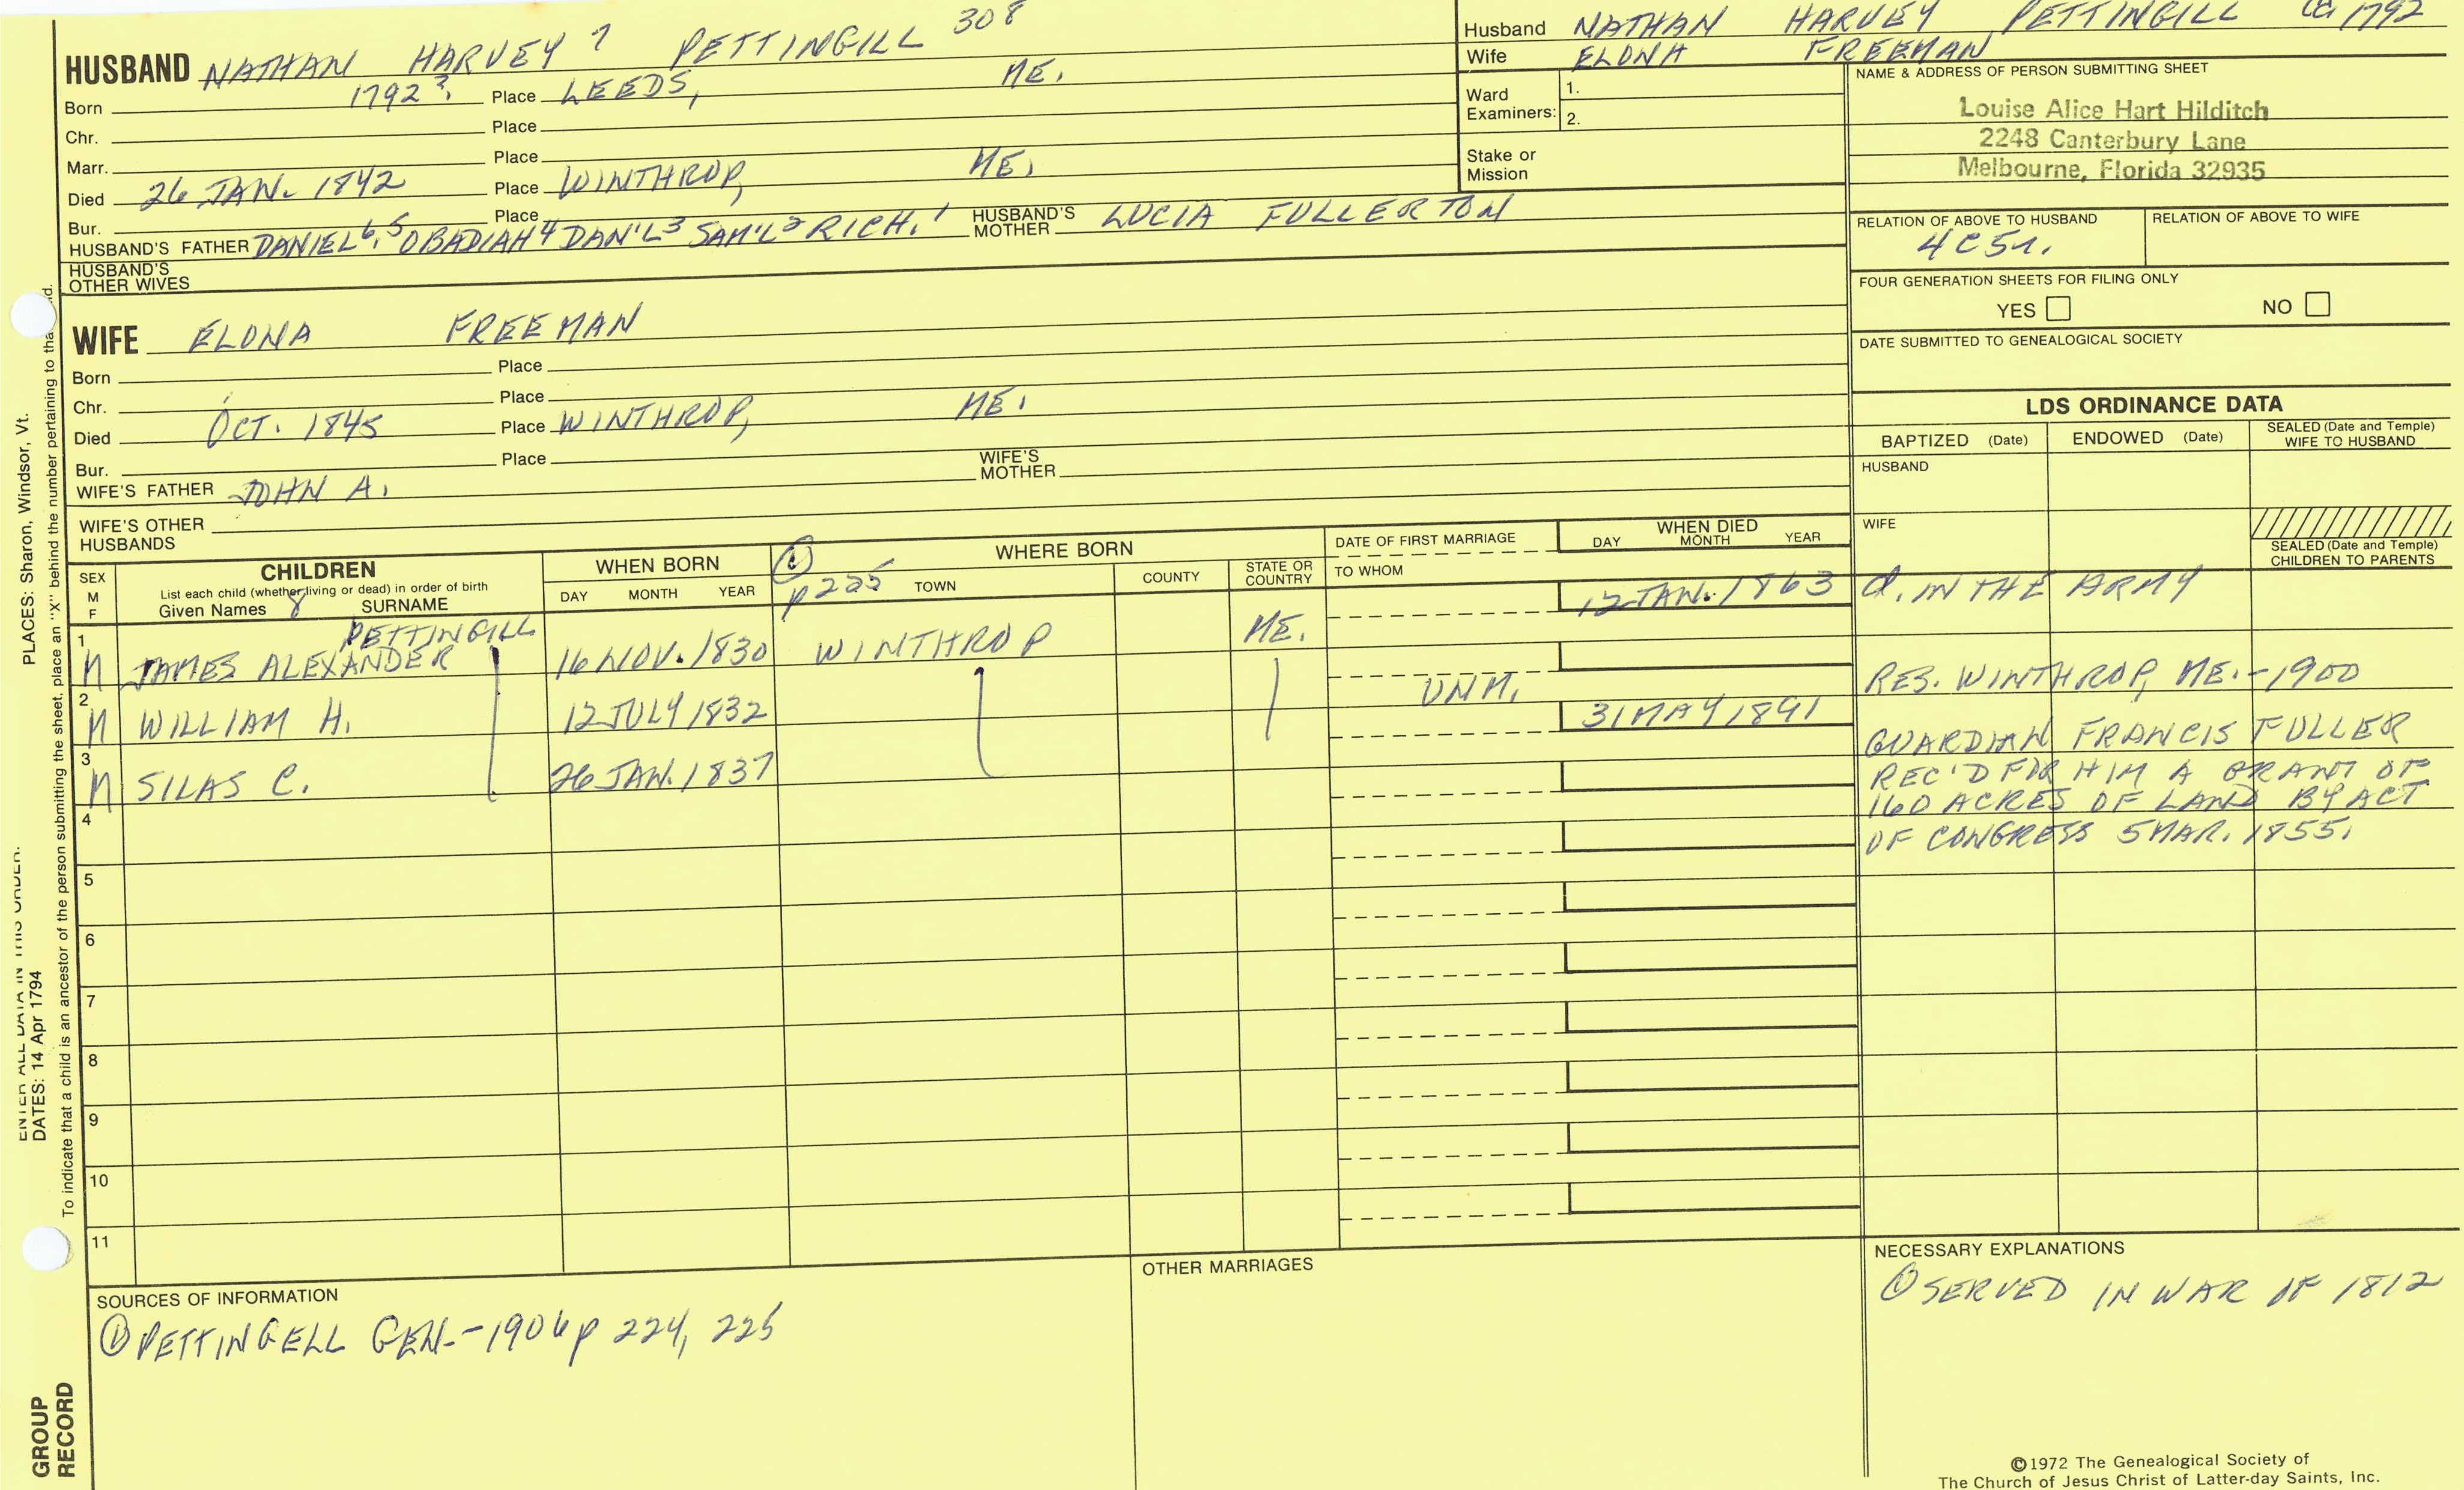 HUSBAND NATHAN HARVEY 7 PETTINGILL 308
Born 1792?. Place LEEDS, ME.
Chr. Place
Marr. Place
Died 26 JAN. 1842 Place WINTHROP, ME.
Bur. Place
HUSBAND'S FATHER DANIEL 6, 5 OBADIAH 4 DAN'L 3 SAM'L 2 RICH. 1 HUSBAND'S MOTHER LUCIA FULLERTON
HUSBAND'S OTHER WIVES
Husband NATHAN HARVEY PETTINGILL ca 1792
Wife ELONA FREEMAN
Ward Examiners: 1.
2.
Stake or Mission
NAME & ADDRESS OF PERSON SUBMITTING SHEET
Louise Alice Hart Hilditch
2248 Canterbury Lane
Melbourne, Florida 32935
RELATION OF ABOVE TO HUSBAND RELATION OF ABOVE TO WIFE
4C5r.
FOUR GENERATION SHEETS FOR FILING ONLY
YES NO
DATE SUBMITTED TO GENEALOGICAL SOCIETY
WIFE ELONA FREEMAN
Born Place
Chr. Place
Died OCT. 1845 Place WINTHROP, ME.
Bur. Place
WIFE'S FATHER JOHN A. WIFE'S MOTHER
WIFE'S OTHER HUSBANDS
LDS ORDINANCE DATA
BAPTIZED (Date) ENDOWED (Date) SEALED (Date and Temple) WIFE TO HUSBAND
HUSBAND
WIFE
SEALED (Date and Temple) CHILDREN TO PARENTS
SEX M F
CHILDREN
List each child (whether living or dead) in order of birth
Given Names 8 SURNAME
WHEN BORN
DAY MONTH YEAR
① p 225
WHERE BORN
TOWN COUNTY STATE OR COUNTRY
DATE OF FIRST MARRIAGE
TO WHOM
WHEN DIED
DAY MONTH YEAR
PETTINGILL
1 M JAMES ALEXANDER 16 NOV. 1830 WINTHROP ME. 12 JAN. 1863 d. IN THE ARMY
2 M WILLIAM H. 12 JULY 1832 RES. WINTHROP, ME. - 1900
3 M SILAS C. 26 JAN. 1837 UNM. 31 MAY 1891 GUARDIAN FRANCIS FULLER
REC'D FOR HIM A GRANT OF
160 ACRES OF LAND BY ACT
OF CONGRESS 5 MAR. 1855.
4
5
6
7
8
9
10
11
SOURCES OF INFORMATION
① PETTINGELL GEN. - 1906 p 224, 225
OTHER MARRIAGES
NECESSARY EXPLANATIONS
① SERVED IN WAR OF 1812
©1972 The Genealogical Society of
The Church of Jesus Christ of Latter-day Saints, Inc.
PLACES: Sharon, Windsor, Vt.
DATES: 14 Apr 1794
To indicate that a child is an ancestor of the person submitting the sheet, place an "X" behind the number pertaining to
ENTER ALL DATA IN THIS ORDER:
GROUP RECORD